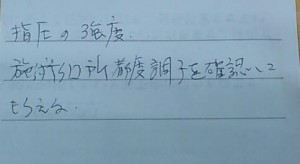 指圧の強度.
施術個所都度調子を確認して
もらえる.